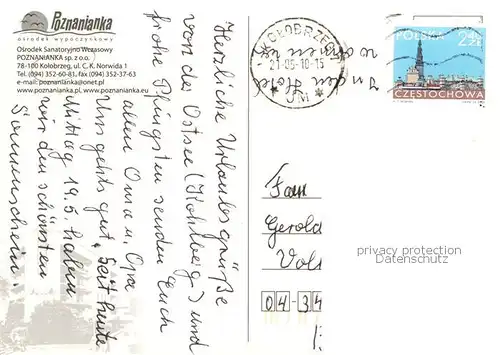 Poznanianka
ośrodek wypoczynkowy
Ośrodek Sanatoryjno-Wczasowy
POZNANIANKA sp. z o.o.
78-100 Kołobrzeg, ul. C. K. Norwida 1
Tel. (094) 352-60-81, fax (094) 352-37-63
e-mail: poznanianka@onet.pl
www.poznanianka.pl, www.poznanianka.eu
Herzliche Urlaubsgrüße
von der Ostsee (Kohlberg) und
frohe Pfingsten senden Euch
allen Oma u. Opa
Uns gehts gut. Seit heute
Mittag 19.5. haben
wir den schönsten
Sonnenschein.
In dem Hotel
KOŁOBRZEG
21-05-10-15
POLSKA
CZĘSTOCHOWA
Fam
Gerold
privacy protection
www.ansichtskarten-center.de
04-34